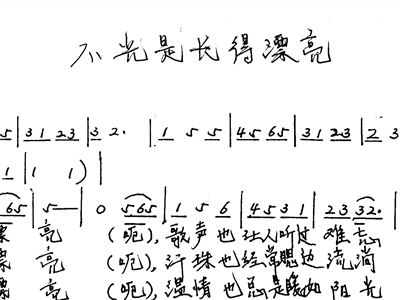 不光是长得漂亮
5 | 3 1 2 3 | 3 2 · | 1 5 5 | 4 5 6 5 | 3 1 2 3 | 2 3
1 | ( 1 1 ) |
6 5 | 5 — | 0 5 6 5 | 1 5 6 | 4 5 3 1 | 2 3 3 2 · |
漂 亮 (呃), 歌声也让人听过难忘
漂 亮 (呃), 汗珠也经常腮边流淌
漂 亮 (呃), 温情也总是暖如阳光